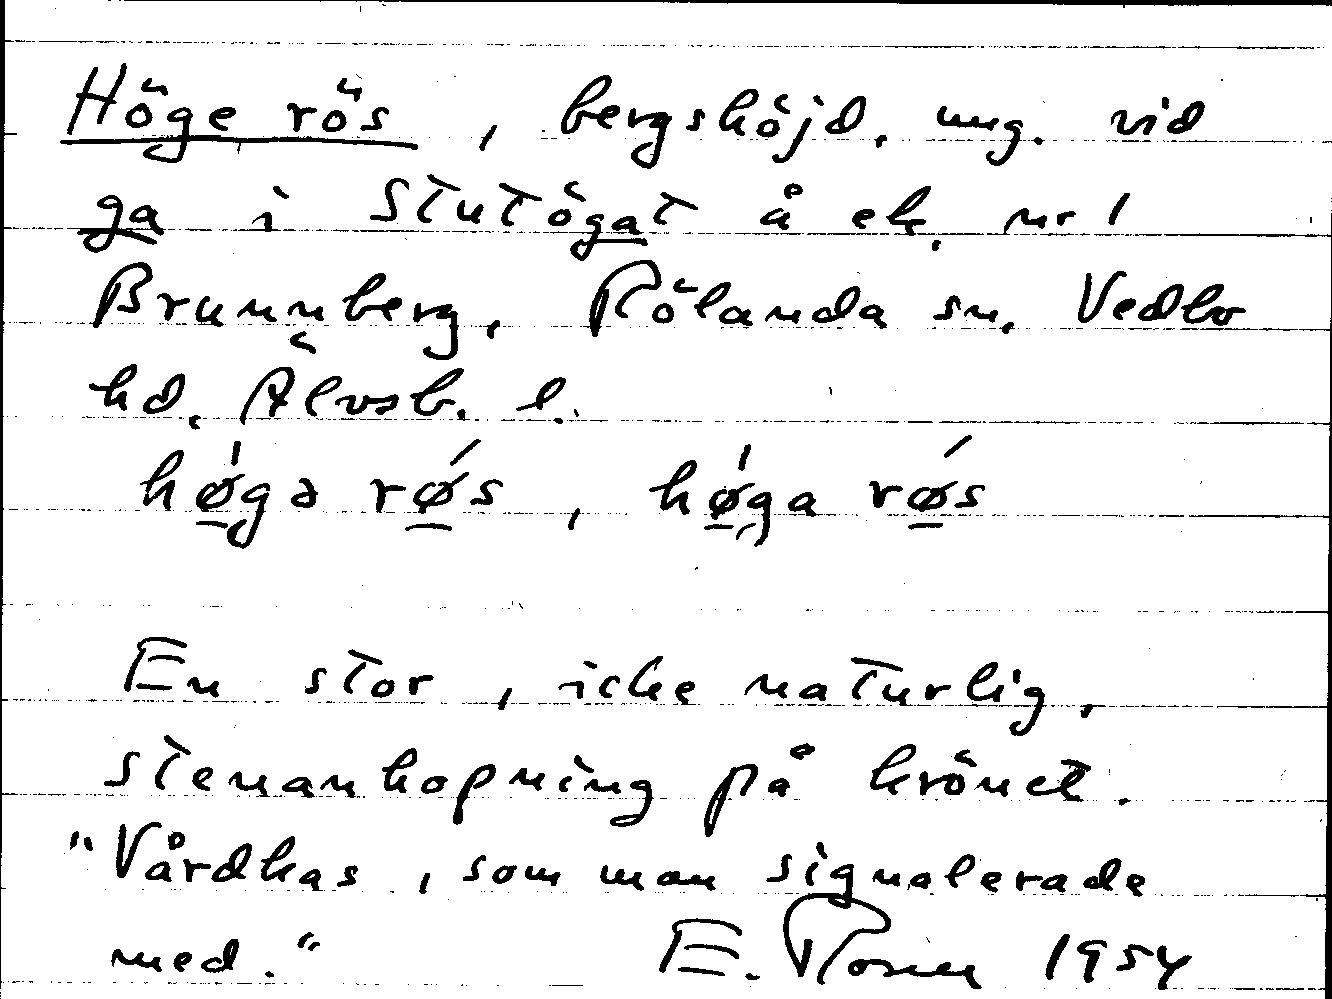 Höge rös, bergshöjd, ung. vid
ga i Stutögat å ek. nr 1
Brunnberg, Rölanda sn, Vedbo
hd, Älvsb. l.
hǿ̱gə rǿ̱s, hǿ̱ga rǿ̱s
En stor, icke naturlig,
stenanhopning på krönet.
"Vårdkas, som man signalerade
med." E. Rosén 1954